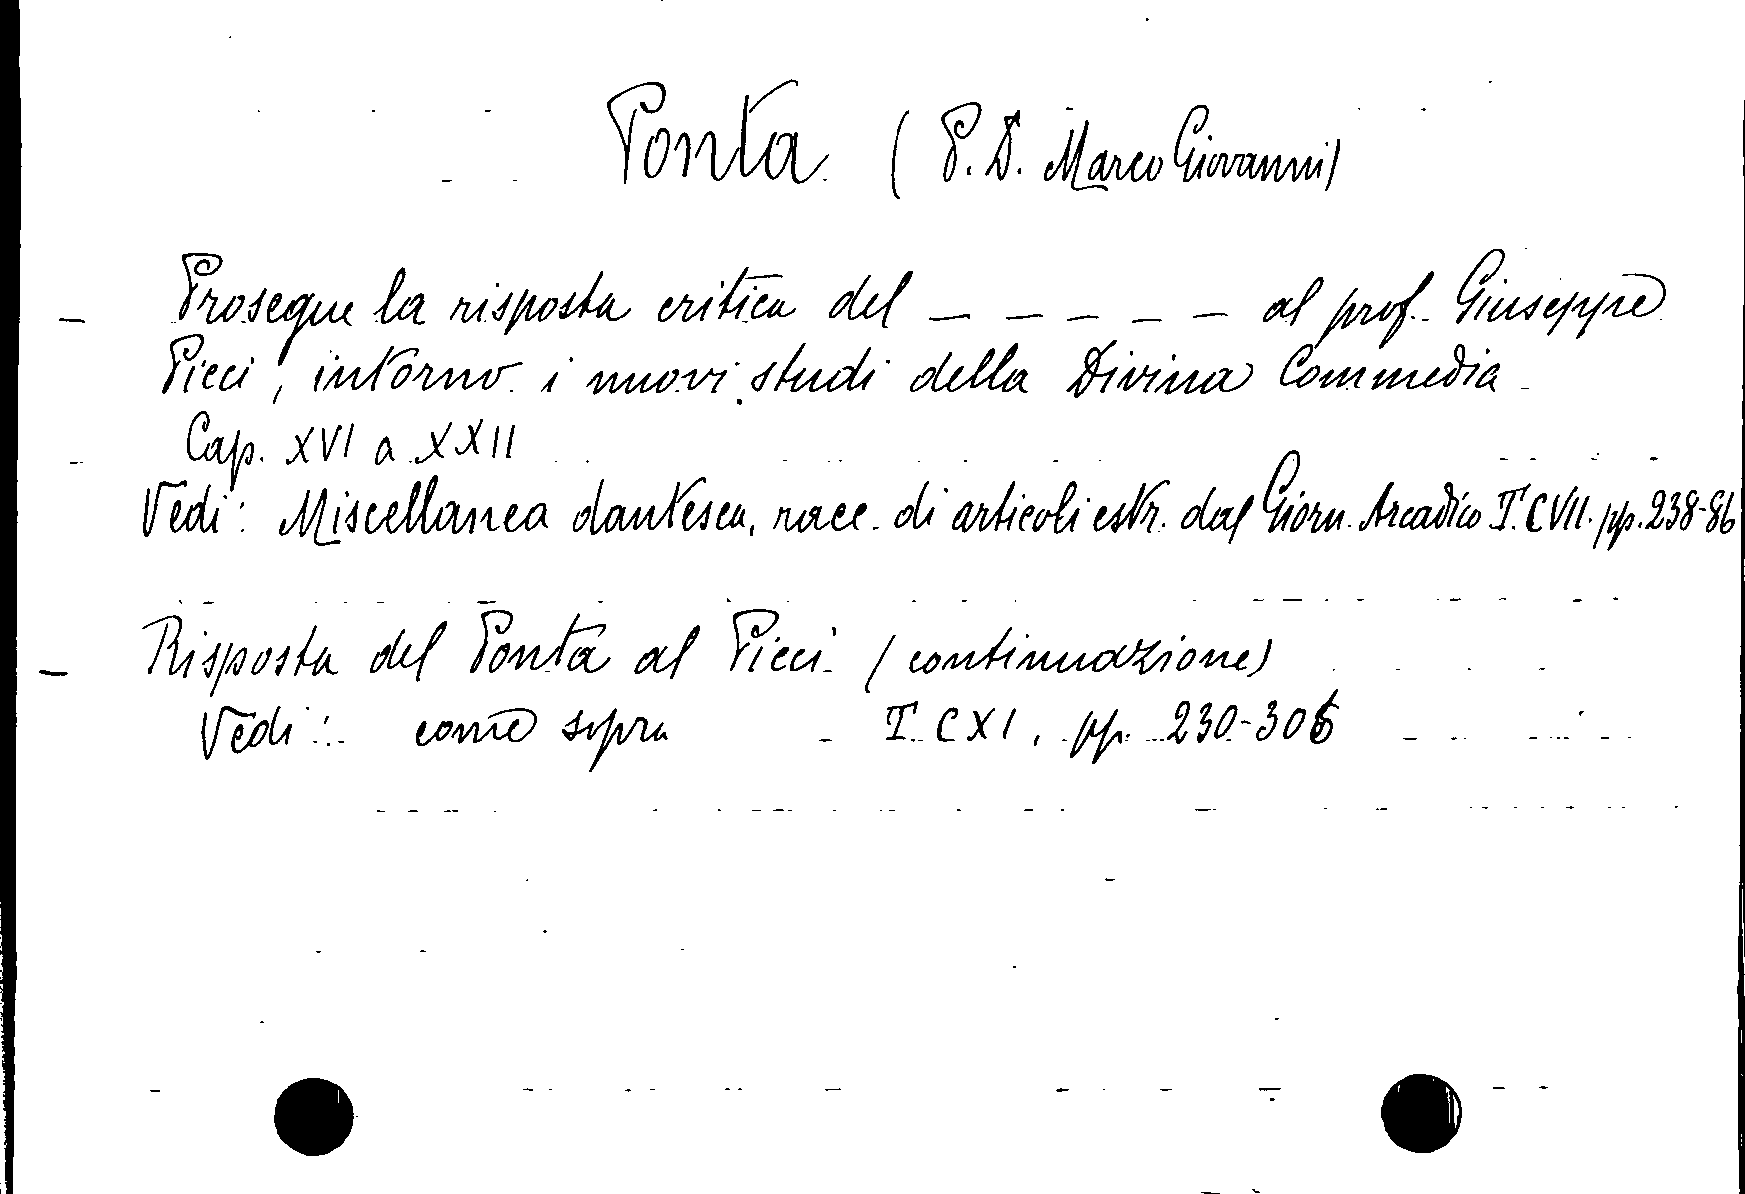 Ponta (P. D. Marco Giovanni)
- Prosegue la risposta critica del _ _ _ _ _ al prof. Giuseppe
Picci, intorno i nuovi studi della Divina Commedia
Cap. XVI a XXII
Vedi: Miscellanea dantesca, racc. di articoli estr. dal Giorn. Arcadico T. CVII. pp. 238-86
- Risposta del Ponta al Picci (continuazione)
Vedi: come sopra - T. CXI, pp. 230-306